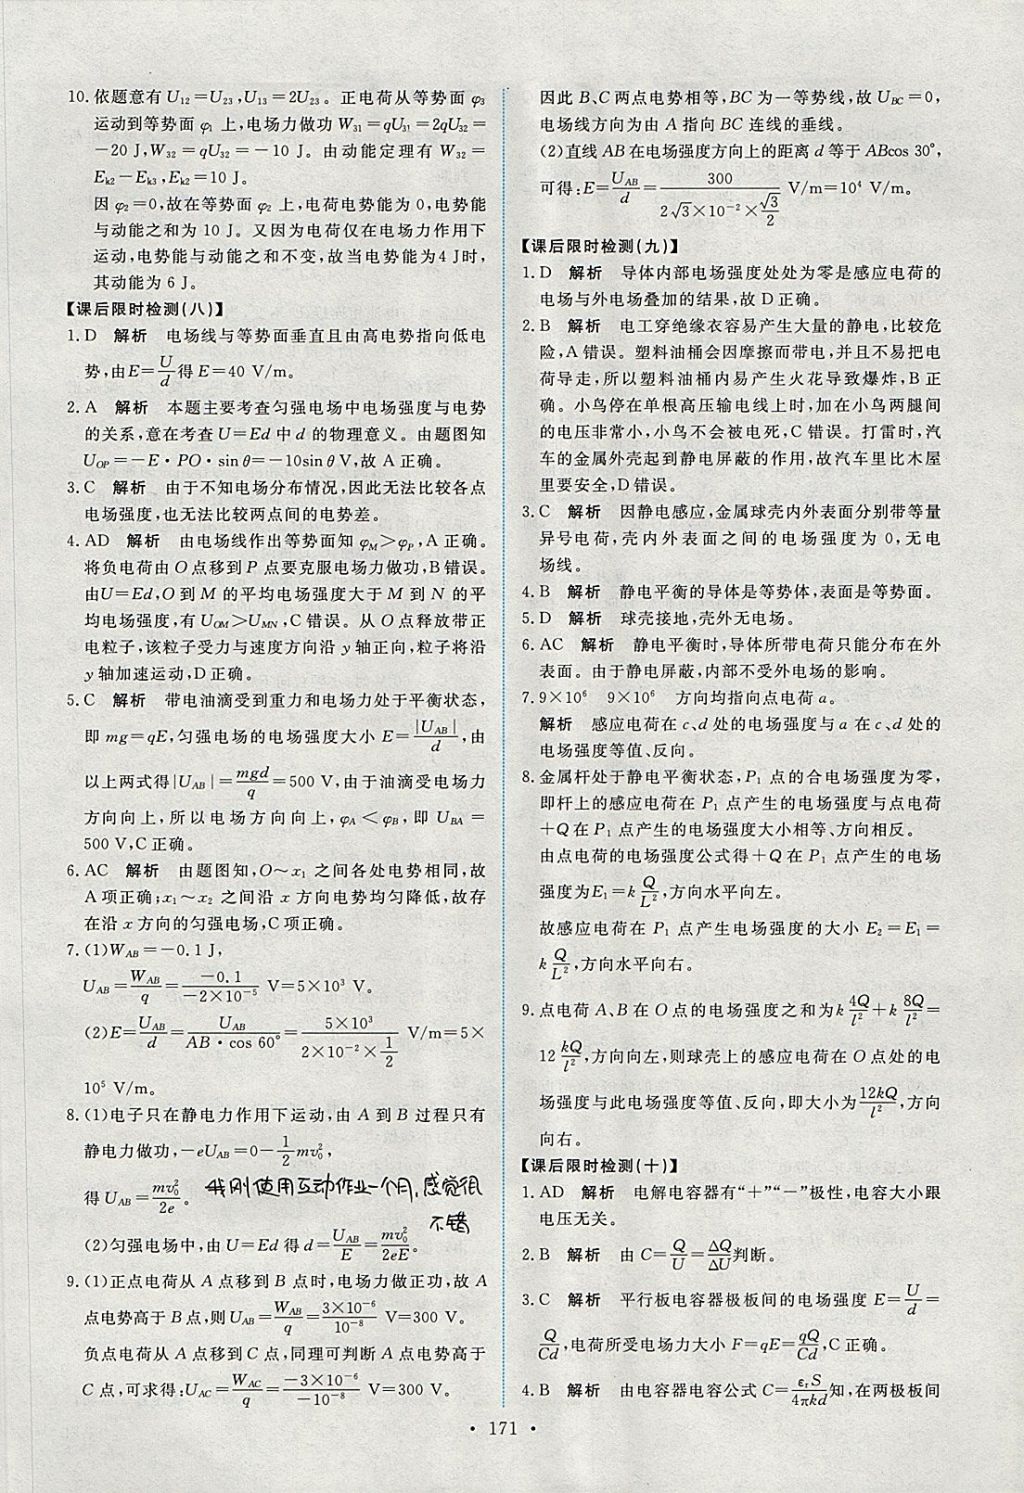 10. 依题意有 U₁₂=U₂₃,U₁₃=2U₂₃。正电荷从等势面 φ₃
运动到等势面 φ₁ 上,电场力做功 W₃₁=qU₃₁=2qU₃₂=
-20 J,W₃₂=qU₃₂=-10 J。由动能定理有 W₃₂=
Eₖ₂-Eₖ₃,Eₖ₂=10 J。
因 φ₂=0,故在等势面 φ₂ 上,电荷电势能为 0,电势能
与动能之和为 10 J。又因为电荷仅在电场力作用下
运动,电势能与动能之和不变,故当电势能为4 J时,
其动能为 6 J。
【课后限时检测(八)】
1. D 解析 电场线与等势面垂直且由高电势指向低电
势,由E=U/d得 E=40 V/m。
2. A 解析 本题主要考查匀强电场中电场强度与电势
的关系,意在考查 U=Ed 中 d 的物理意义。由题图知
U_OP=-E·PO·sin θ=-10sin θ V,故 A 正确。
3. C 解析 由于不知电场分布情况,因此无法比较各点
电场强度,也无法比较两点间的电势差。
4. AD 解析 由电场线作出等势面知 φ_M>φ_P,A 正确。
将负电荷由 O 点移到 P 点要克服电场力做功,B错误。
由U=Ed,O 到 M 的平均电场强度大于 M 到 N 的平
均电场强度,有 U_OM>U_MN,C 错误。从 O 点释放带正
电粒子,该粒子受力与速度方向沿 y 轴正向,粒子将沿
y 轴加速运动,D 正确。
5. C 解析 带电油滴受到重力和电场力处于平衡状态,
即 mg=qE,匀强电场的电场强度大小 E=|U_AB|/d,由
以上两式得|U_AB|=mgd/q=500 V,由于油滴受电场力
方向向上,所以电场方向向上,φ_A<φ_B,即 U_BA=
500 V,C 正确。
6. AC 解析 由题图知,O～x₁ 之间各处电势相同,故
A 项正确;x₁～x₂ 之间沿 x 方向电势均匀降低,故存
在沿 x 方向的匀强电场,C项正确。
7. (1)W_AB=-0.1 J,
U_AB=W_AB/q=-0.1/(-2×10⁻⁵) V=5×10³ V。
(2)E=U_AB/d=U_AB/(AB·cos 60°)=5×10³/(2×10⁻²×1/2) V/m=5×
10⁵ V/m。
8. (1)电子只在静电力作用下运动,由 A 到 B 过程只有
静电力做功,-eU_AB=0-1/2 mv₀²,
得 U_AB=mv₀²/2e。 我刚使用互动作业一个月,感觉很
不错
(2)匀强电场中,由 U=Ed 得 d=U_AB/E=mv₀²/2eE。
9. (1)正点电荷从 A 点移到 B 点时,电场力做正功,故 A
点电势高于 B 点,则 U_AB=W_AB/q=3×10⁻⁶/10⁻⁸ V=300 V。
负点电荷从 A 点移到 C 点,同理可判断 A 点电势高于
C 点,可求得:U_AC=W_AC/q=-3×10⁻⁶/-10⁻⁸ V=300 V。
因此 B、C 两点电势相等,BC 为一等势线,故 U_BC=0,
电场线方向为由 A 指向 BC 连线的垂线。
(2)直线 AB在电场强度方向上的距离 d 等于 ABcos 30°,
可得:E=U_AB/d=300/(2√3×10⁻²×√3/2) V/m=10⁴ V/m。
【课后限时检测(九)】
1. D 解析 导体内部电场强度处处为零是感应电荷的
电场与外电场叠加的结果,故 D 正确。
2. B 解析 电工穿绝缘衣容易产生大量的静电,比较危
险,A 错误。塑料油桶会因摩擦而带电,并且不易把电
荷导走,所以塑料油桶内易产生火花导致爆炸,B 正
确。小鸟停在单根高压输电线上时,加在小鸟两腿间
的电压非常小,小鸟不会被电死,C 错误。打雷时,汽
车的金属外壳起到静电屏蔽的作用,故汽车里比木屋
里要安全,D错误。
3. C 解析 因静电感应,金属球壳内外表面分别带等量
异号电荷,壳内外表面之间的电场强度为 0,无电
场线。
4. B 解析 静电平衡的导体是等势体,表面是等势面。
5. D 解析 球壳接地,壳外无电场。
6. AC 解析 静电平衡时,导体所带电荷只能分布在外
表面。由于静电屏蔽,内部不受外电场的影响。
7. 9×10⁶ 9×10⁶ 方向均指向点电荷 a。
解析 感应电荷在 c、d 处的电场强度与 a 在 c、d 处的
电场强度等值、反向。
8. 金属杆处于静电平衡状态,P₁ 点的合电场强度为零,
即杆上的感应电荷在 P₁ 点产生的电场强度与点电荷
+Q 在 P₁ 点产生的电场强度大小相等、方向相反。
由点电荷的电场强度公式得+Q 在 P₁ 点产生的电场
强度为E₁=k Q/L²,方向水平向左。
故感应电荷在 P₁ 点产生电场强度的大小 E₂=E₁=
k Q/L²,方向水平向右。
9. 点电荷 A、B 在 O 点的电场强度之和为 k 4Q/l²+k 8Q/l²=
12 kQ/l²,方向向左,则球壳上的感应电荷在 O 点处的电
场强度与此电场强度等值、反向,即大小为12kQ/l²,方向
向右。
【课后限时检测(十)】
1. AD 解析 电解电容器有“+”“-”极性,电容大小跟
电压无关。
2. B 解析 由 C=Q/U=ΔQ/ΔU判断。
3. C 解析 平行板电容器极板间的电场强度 E=U/d=
Q/Cd,电荷所受电场力大小 F=qE=qQ/Cd,C 正确。
4. B 解析 由电容器电容公式 C=εᵣS/4πkd知,在两极板间
• 171 •